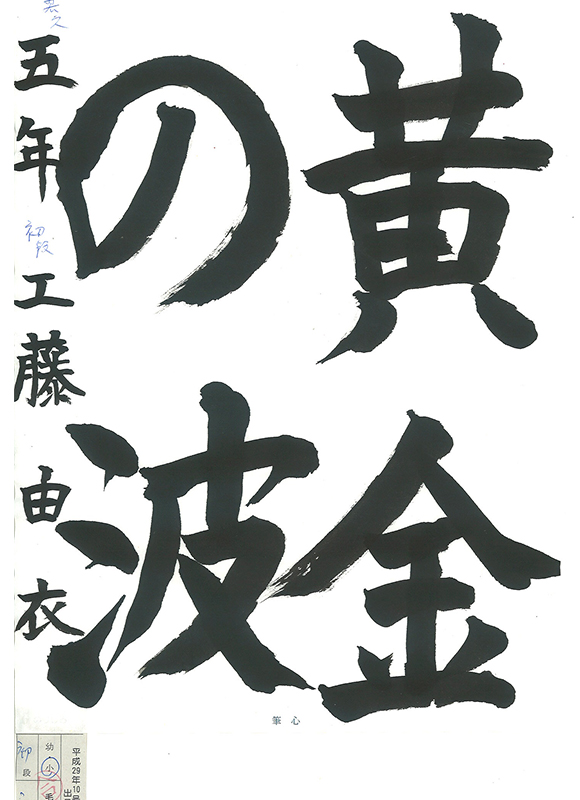 黄金
の波
五年 工藤由衣
初段
心筆
平成29年10号
幼
小
初段